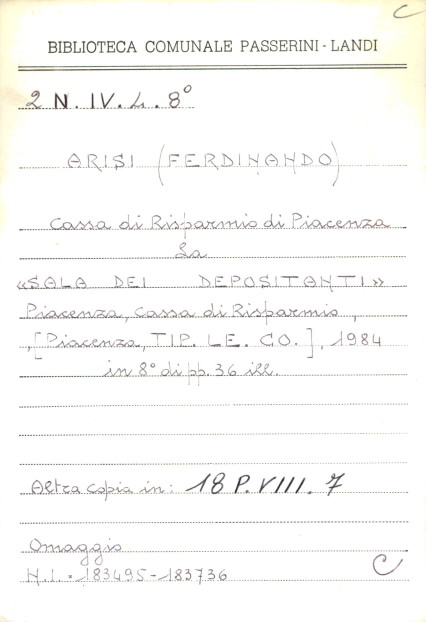 C
BIBLIOTECA COMUNALE PASSERINI - LANDI
2 N. IV. L. 8°
ARISI (FERDINANDO)
Cassa di Risparmio di Piacenza
La
«SALA DEI DEPOSITANTI»
Piacenza, Cassa di Risparmio,
,[Piacenza, TIP. LE. CO.], 1984
in 8° di pp. 36 ill.
Altra copia in: 18 P. VIII. 7
Omaggio
N.I. = 183495-183736
C